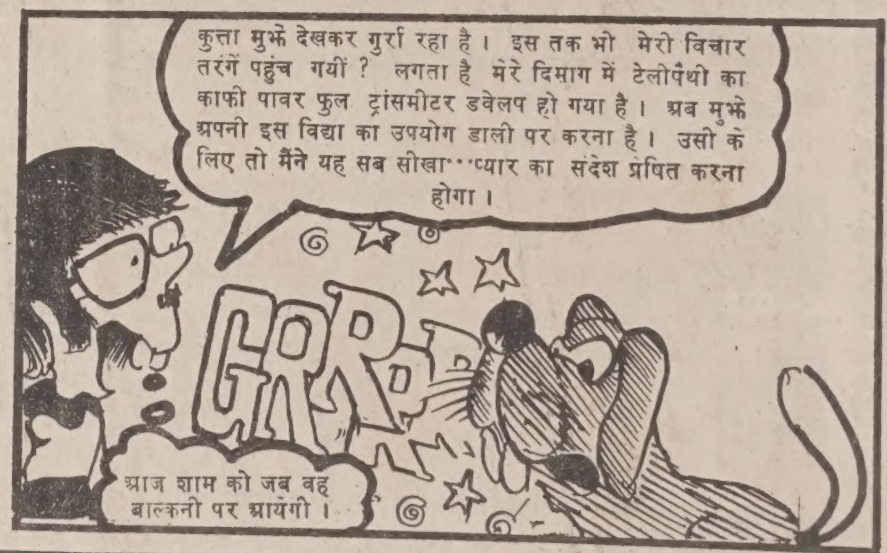 कुत्ता मुझे देखकर गुर्रा रहा है। इस तक भी मेरी विचार
तरंगें पहुंच गयीं ? लगता है मेरे दिमाग में टेलीपैथी का
काफी पावर फुल ट्रांसमीटर डवेलप हो गया है। अब मुझे
अपनी इस विद्या का उपयोग डाली पर करना है। उसी के
लिए तो मैंने यह सब सीखा···प्यार का संदेश प्रेषित करना
होगा।
GRRRR
आज शाम को जब वह
बाल्कनी पर आयेगी।